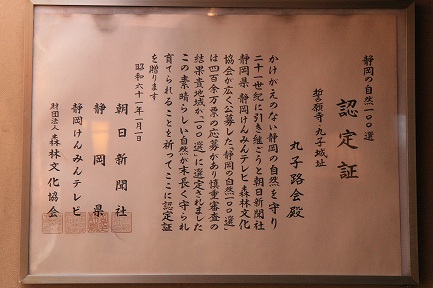 静岡の自然一〇〇選
認定証
誓願寺 丸子城址
丸子路会殿
かけがえのない静岡の自然を守り
二十一世紀に引き継ごうと朝日新聞社
静岡県 静岡けんみんテレビ 森林文化
協会が広く公募した「静岡の自然一〇〇選」
は四百余万票の応募があり慎重審査の
結果貴地域が「一〇〇選」に選定されました
この素晴らしい自然が末長く守られ
育てられることを祈ってここに認定証
を贈ります
昭和六十一年一月一日
朝日新聞社
静岡県
静岡けんみんテレビ
財団法人森林文化協会